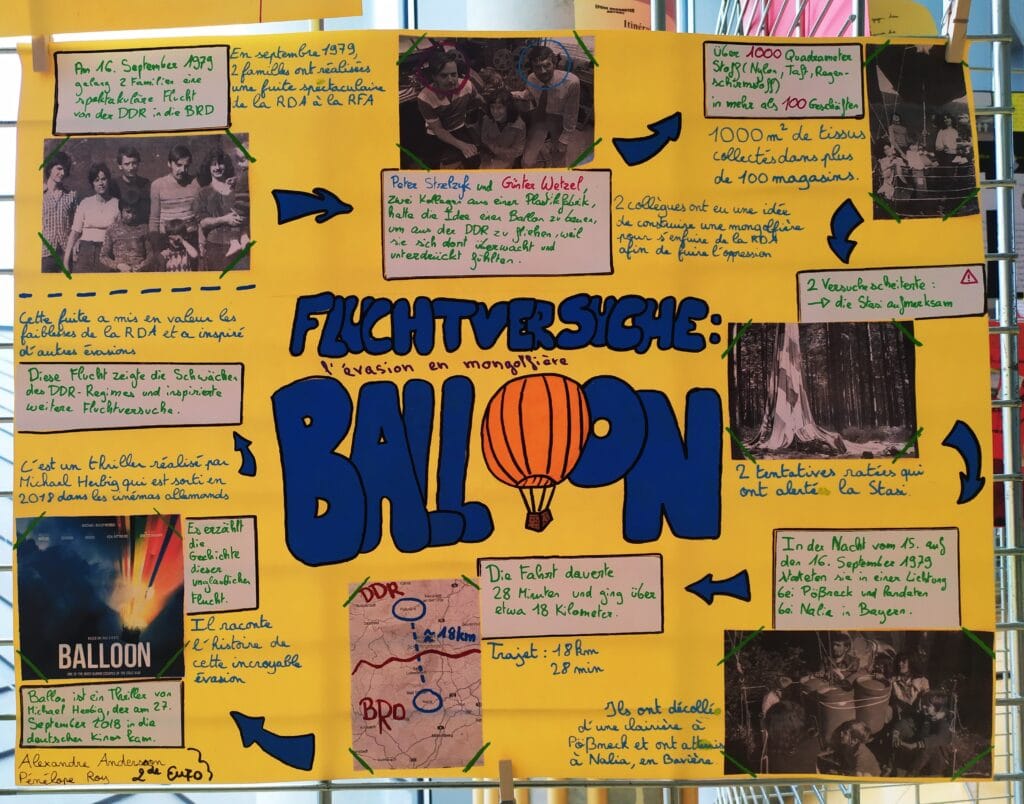 Am 16. September 1979
gelang 2 Familien eine
spektakuläre Flucht
von der DDR in die BRD
En septembre 1979,
2 familles ont réalisées
une fuite spectaculaire
de la RDA à la RFA
Peter Strelzyk und Günter Wetzel,
zwei Kollegen aus einer Plastikfabrik,
hatte die Idee einen Ballon zu bauen,
um aus der DDR zu fliehen, weil
sie sich dort überwacht und
unterdrückt fühlten.
2 collègues ont eu une idée
de construire une mongolfière
pour s'enfuire de la RDA
afin de fuire l'oppression
Über 1000 Quadrameter
Stoff (Nylon, Taft, Regen-
schirmstoff)
in mehr als 100 Geschäften
1000 m² de tissus
collectés dans plus
de 100 magasins.
2 Versuche scheiterte :
→ die Stasi aufmerksam
2 tentatives ratées qui
ont alertée la Stasi.
FLUCHTVERSUCHE:
l'évasion en mongolfière
BALLOON
In der Nacht vom 15. auf
den 16. September 1979
starteten sie in einer Lichtung
bei Pößneck und landeten
bei Nalia in Bayern.
Ils ont décollé
d'une clairière à
Pößneck et ont atterris
à Nalia, en Bavière.
Die Fahrt dauerte
28 Minuten und ging über
etwa 18 Kilometer.
Trajet : 18 km
28 min
DDR
≈ 18 km
BRD
Ballon ist ein Thriller von
Michael Herbig, der am 27.
September 2018 in die
deutschen Kinos kam.
BALLOON
Es erzählt
die
Geschichte
dieser
unglaublichen
Flucht.
Il raconte
l'histoire de
cette incroyable
évasion
C'est un thriller réalisé par
Michael Herbig qui est sorti en
2018 dans les cinémas allemands
Diese Flucht zeigte die Schwächen
des DDR-Regimes und inspirierte
weitere Fluchtversuche.
Cette fuite a mis en valeur les
faiblesses de la RDA et a inspiré
d'autres évasions
Alexandre Andersson
Pénélope Roy
2de Euro